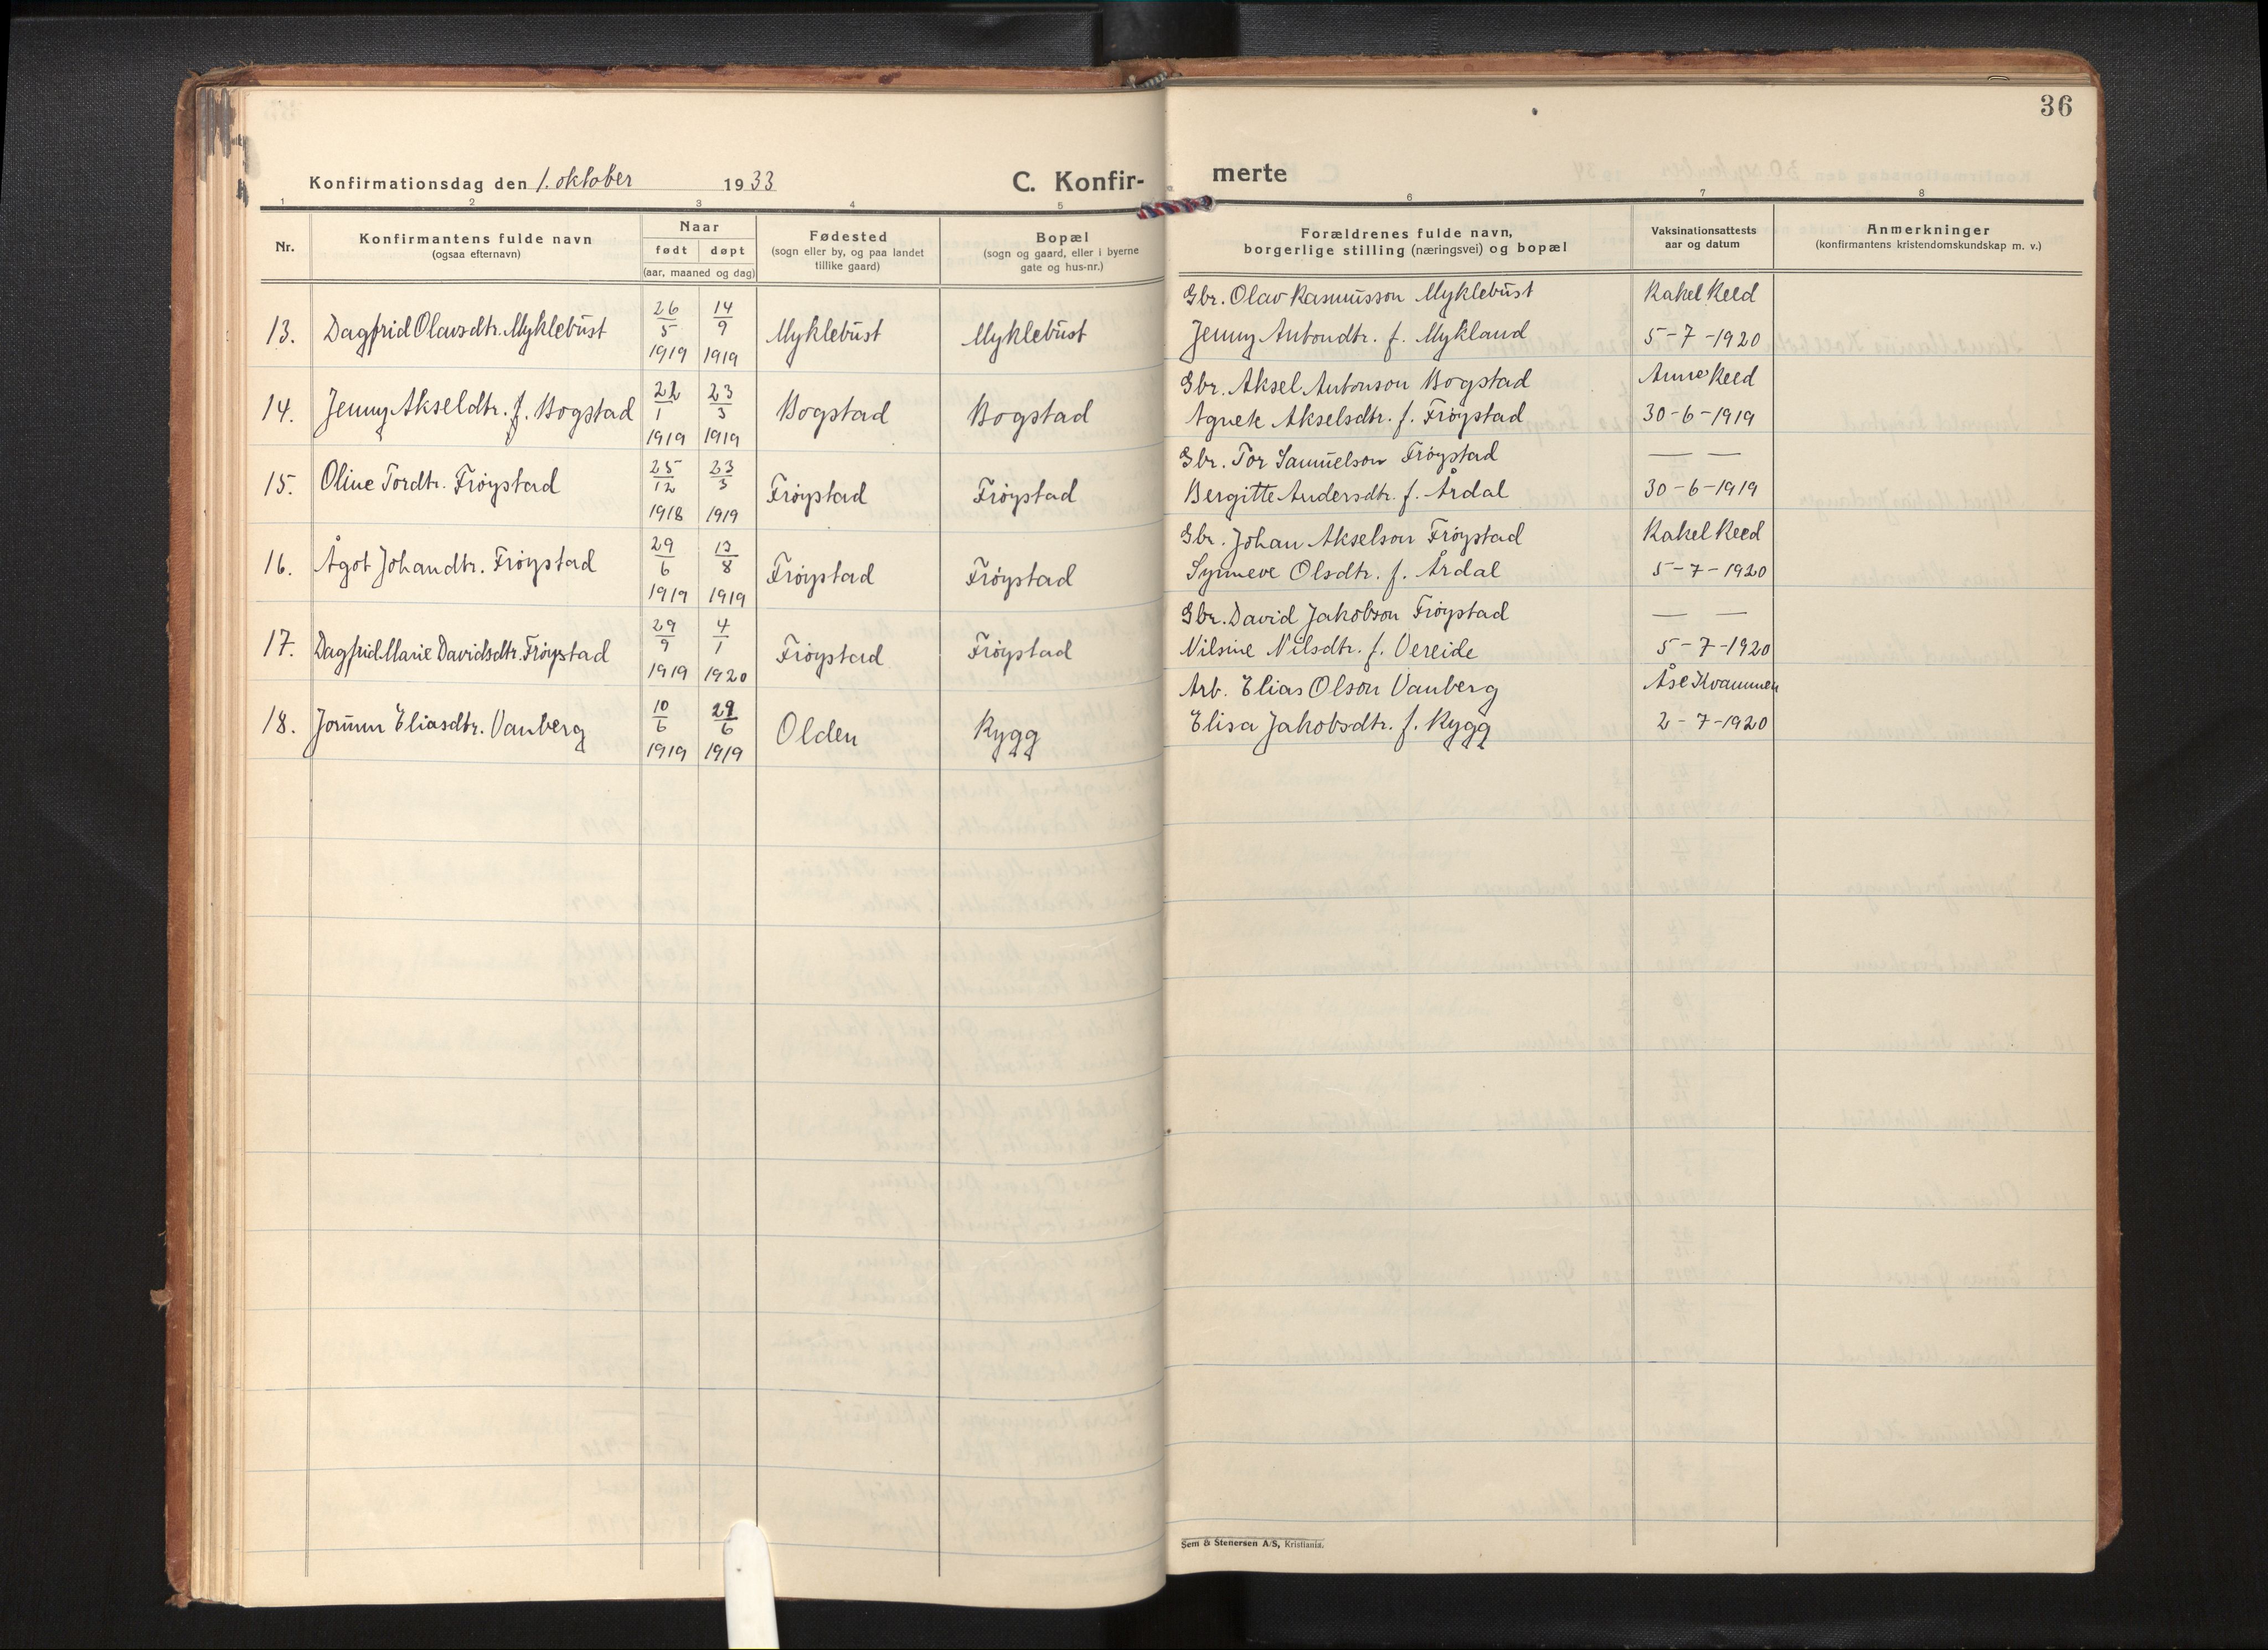 36
Konfirmationsdag den 1. oktober 1933
C. Konfir-
merte
1 2 3 4 5 6 7 8
Nr.
Konfirmantens fulde navn
(ogsaa efternavn)
Naar
født døpt
(aar, maaned og dag)
Fødested
(sogn eller by, og paa landet
tillike gaard)
Bopæl
(sogn og gaard, eller i byerne
gate og hus-nr.)
Forældrenes fulde navn,
borgerlige stilling (næringsvei) og bopæl
Vaksinationsattests
aar og datum
Anmerkninger
(konfirmantens kristendomskundskap m. v.)
13. Dagfrid Olavsdtr. Myklebust 26/5 1919 14/9 1919 Myklebust Myklebust
Gbr. Olav Rasmusson Myklebust Rakel Reed
Jenny Antondtr. f. Mykland 5-7-1920
14. Jenny Akseldtr. f. Bogstad 22/1 1919 23/3 1919 Bogstad Bogstad
Gbr. Aksel Antonson Bogstad Anne Reed
Agnete Akselsdtr. f. Frøystad 30-6-1919
15. Oline Tordtr. Frøystad 25/12 1918 23/3 1919 Frøystad Frøystad
Gbr. Tor Samuelson Frøystad — —
Bergitte Andersdtr. f. Årdal 30-6-1919
16. Ågot Johandtr. Frøystad 29/6 1919 13/8 1919 Frøystad Frøystad
Gbr. Johan Akselson Frøystad Rakel Reed
Synneve Olsdtr. f. Årdal 5-7-1920
17. Dagfrid Marie Davidsdtr. Frøystad 29/9 1919 4/1 1920 Frøystad Frøystad
Gbr. David Jakobson Frøystad — —
Nilsine Nilsdtr. f. Vereide 5-7-1920
18. Jorunn Eliasdtr. Vanberg 10/6 1919 29/6 1919 Olden Rygg
Arb. Elias Olson Vanberg Åse Kvammen
Elisa Jakobsdtr. f. Rygg 2-7-1920
Sem & Stenersen A/S, Kristiania.